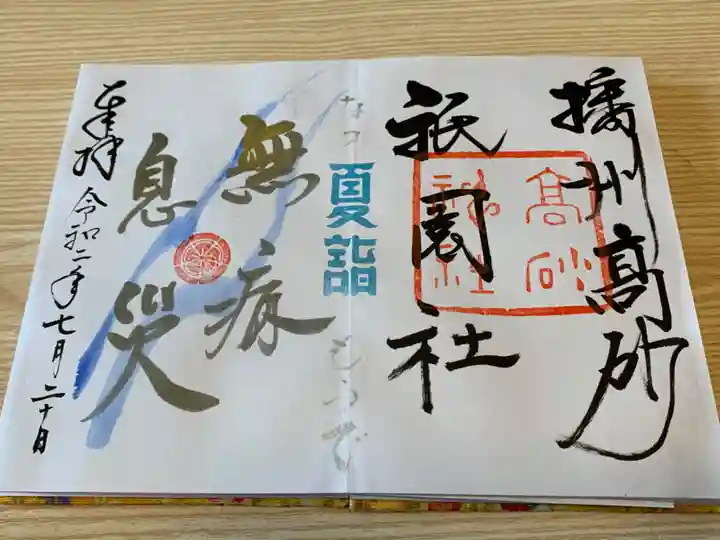 播州高砂
祇園社
高砂
神社
夏詣
なつもうで
無病
息災
奉拝
令和二年七月二十日